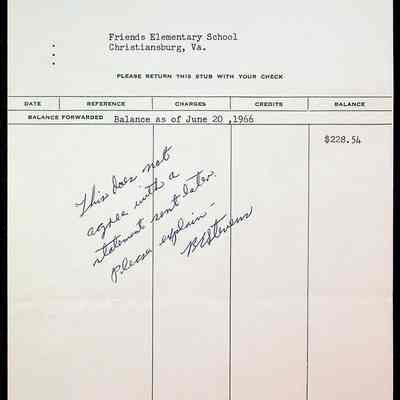 Friends Elementary School
Christiansburg, Va.
PLEASE RETURN THIS STUB WITH YOUR CHECK
DATE REFERENCE CHARGES CREDITS BALANCE
BALANCE FORWARDED Balance as of June 20 ,1966
$228.54
This does not
agree with a
statement sent later.
Please explain -
BHStevens